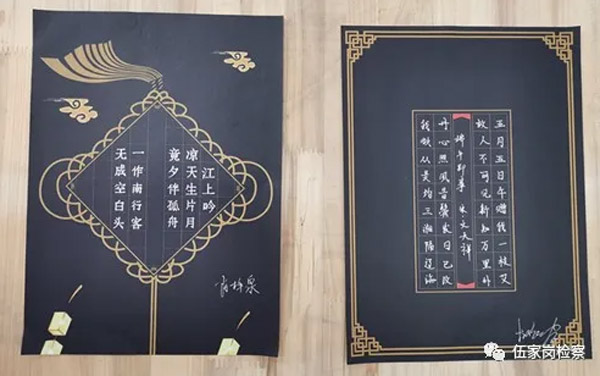 江上吟
凉天生片月
竟夕伴孤舟
一作南行客
无成空白头
五月五日午赠我一枝艾
故人不可见新知万里外
端午即事 宋文天祥
丹心照夙昔鬓发日已改
我欲从灵均三湘隔辽海
伍家岗检察